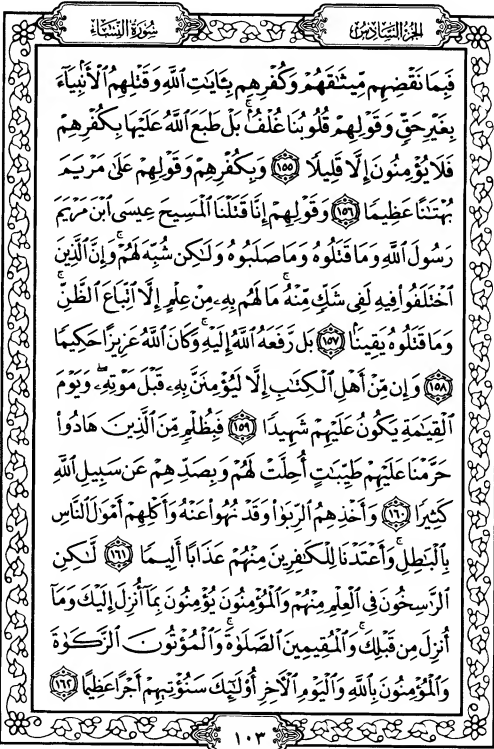 سُورَةُ النِّسَاءِ
الجُزْءُ السَّادِسُ
فَبِمَا نَقْضِهِم مِّيثَٰقَهُمْ وَكُفْرِهِم بِـَٔايَٰتِ ٱللَّهِ وَقَتْلِهِمُ ٱلْأَنۢبِيَآءَ
بِغَيْرِ حَقٍّ وَقَوْلِهِمْ قُلُوبُنَا غُلْفٌۢ ۚ بَلْ طَبَعَ ٱللَّهُ عَلَيْهَا بِكُفْرِهِمْ
فَلَا يُؤْمِنُونَ إِلَّا قَلِيلًا ١٥٥ وَبِكُفْرِهِمْ وَقَوْلِهِمْ عَلَىٰ مَرْيَمَ
بُهْتَٰنًا عَظِيمًا ١٥٦ وَقَوْلِهِمْ إِنَّا قَتَلْنَا ٱلْمَسِيحَ عِيسَى ٱبْنَ مَرْيَمَ
رَسُولَ ٱللَّهِ وَمَا قَتَلُوهُ وَمَا صَلَبُوهُ وَلَٰكِن شُبِّهَ لَهُمْ ۚ وَإِنَّ ٱلَّذِينَ
ٱخْتَلَفُوا۟ فِيهِ لَفِى شَكٍّ مِّنْهُ ۚ مَا لَهُم بِهِۦ مِنْ عِلْمٍ إِلَّا ٱتِّبَاعَ ٱلظَّنِّ ۚ
وَمَا قَتَلُوهُ يَقِينًۢا ١٥٧ بَل رَّفَعَهُ ٱللَّهُ إِلَيْهِ ۚ وَكَانَ ٱللَّهُ عَزِيزًا حَكِيمًا
١٥٨ وَإِن مِّنْ أَهْلِ ٱلْكِتَٰبِ إِلَّا لَيُؤْمِنَنَّ بِهِۦ قَبْلَ مَوْتِهِۦ ۖ وَيَوْمَ
ٱلْقِيَٰمَةِ يَكُونُ عَلَيْهِمْ شَهِيدًا ١٥٩ فَبِظُلْمٍ مِّنَ ٱلَّذِينَ هَادُوا۟
حَرَّمْنَا عَلَيْهِمْ طَيِّبَٰتٍ أُحِلَّتْ لَهُمْ وَبِصَدِّهِمْ عَن سَبِيلِ ٱللَّهِ
كَثِيرًا ١٦٠ وَأَخْذِهِمُ ٱلرِّبَوٰا۟ وَقَدْ نُهُوا۟ عَنْهُ وَأَكْلِهِمْ أَمْوَٰلَ ٱلنَّاسِ
بِٱلْبَٰطِلِ ۚ وَأَعْتَدْنَا لِلْكَٰفِرِينَ مِنْهُمْ عَذَابًا أَلِيمًا ١٦١ لَّٰكِنِ
ٱلرَّٰسِخُونَ فِى ٱلْعِلْمِ مِنْهُمْ وَٱلْمُؤْمِنُونَ يُؤْمِنُونَ بِمَآ أُنزِلَ إِلَيْكَ وَمَآ
أُنزِلَ مِن قَبْلِكَ ۚ وَٱلْمُقِيمِينَ ٱلصَّلَوٰةَ ۚ وَٱلْمُؤْتُونَ ٱلزَّكَوٰةَ
وَٱلْمُؤْمِنُونَ بِٱللَّهِ وَٱلْيَوْمِ ٱلْـَٔاخِرِ أُو۟لَٰٓئِكَ سَنُؤْتِيهِمْ أَجْرًا عَظِيمًا ١٦٢
١٠٣